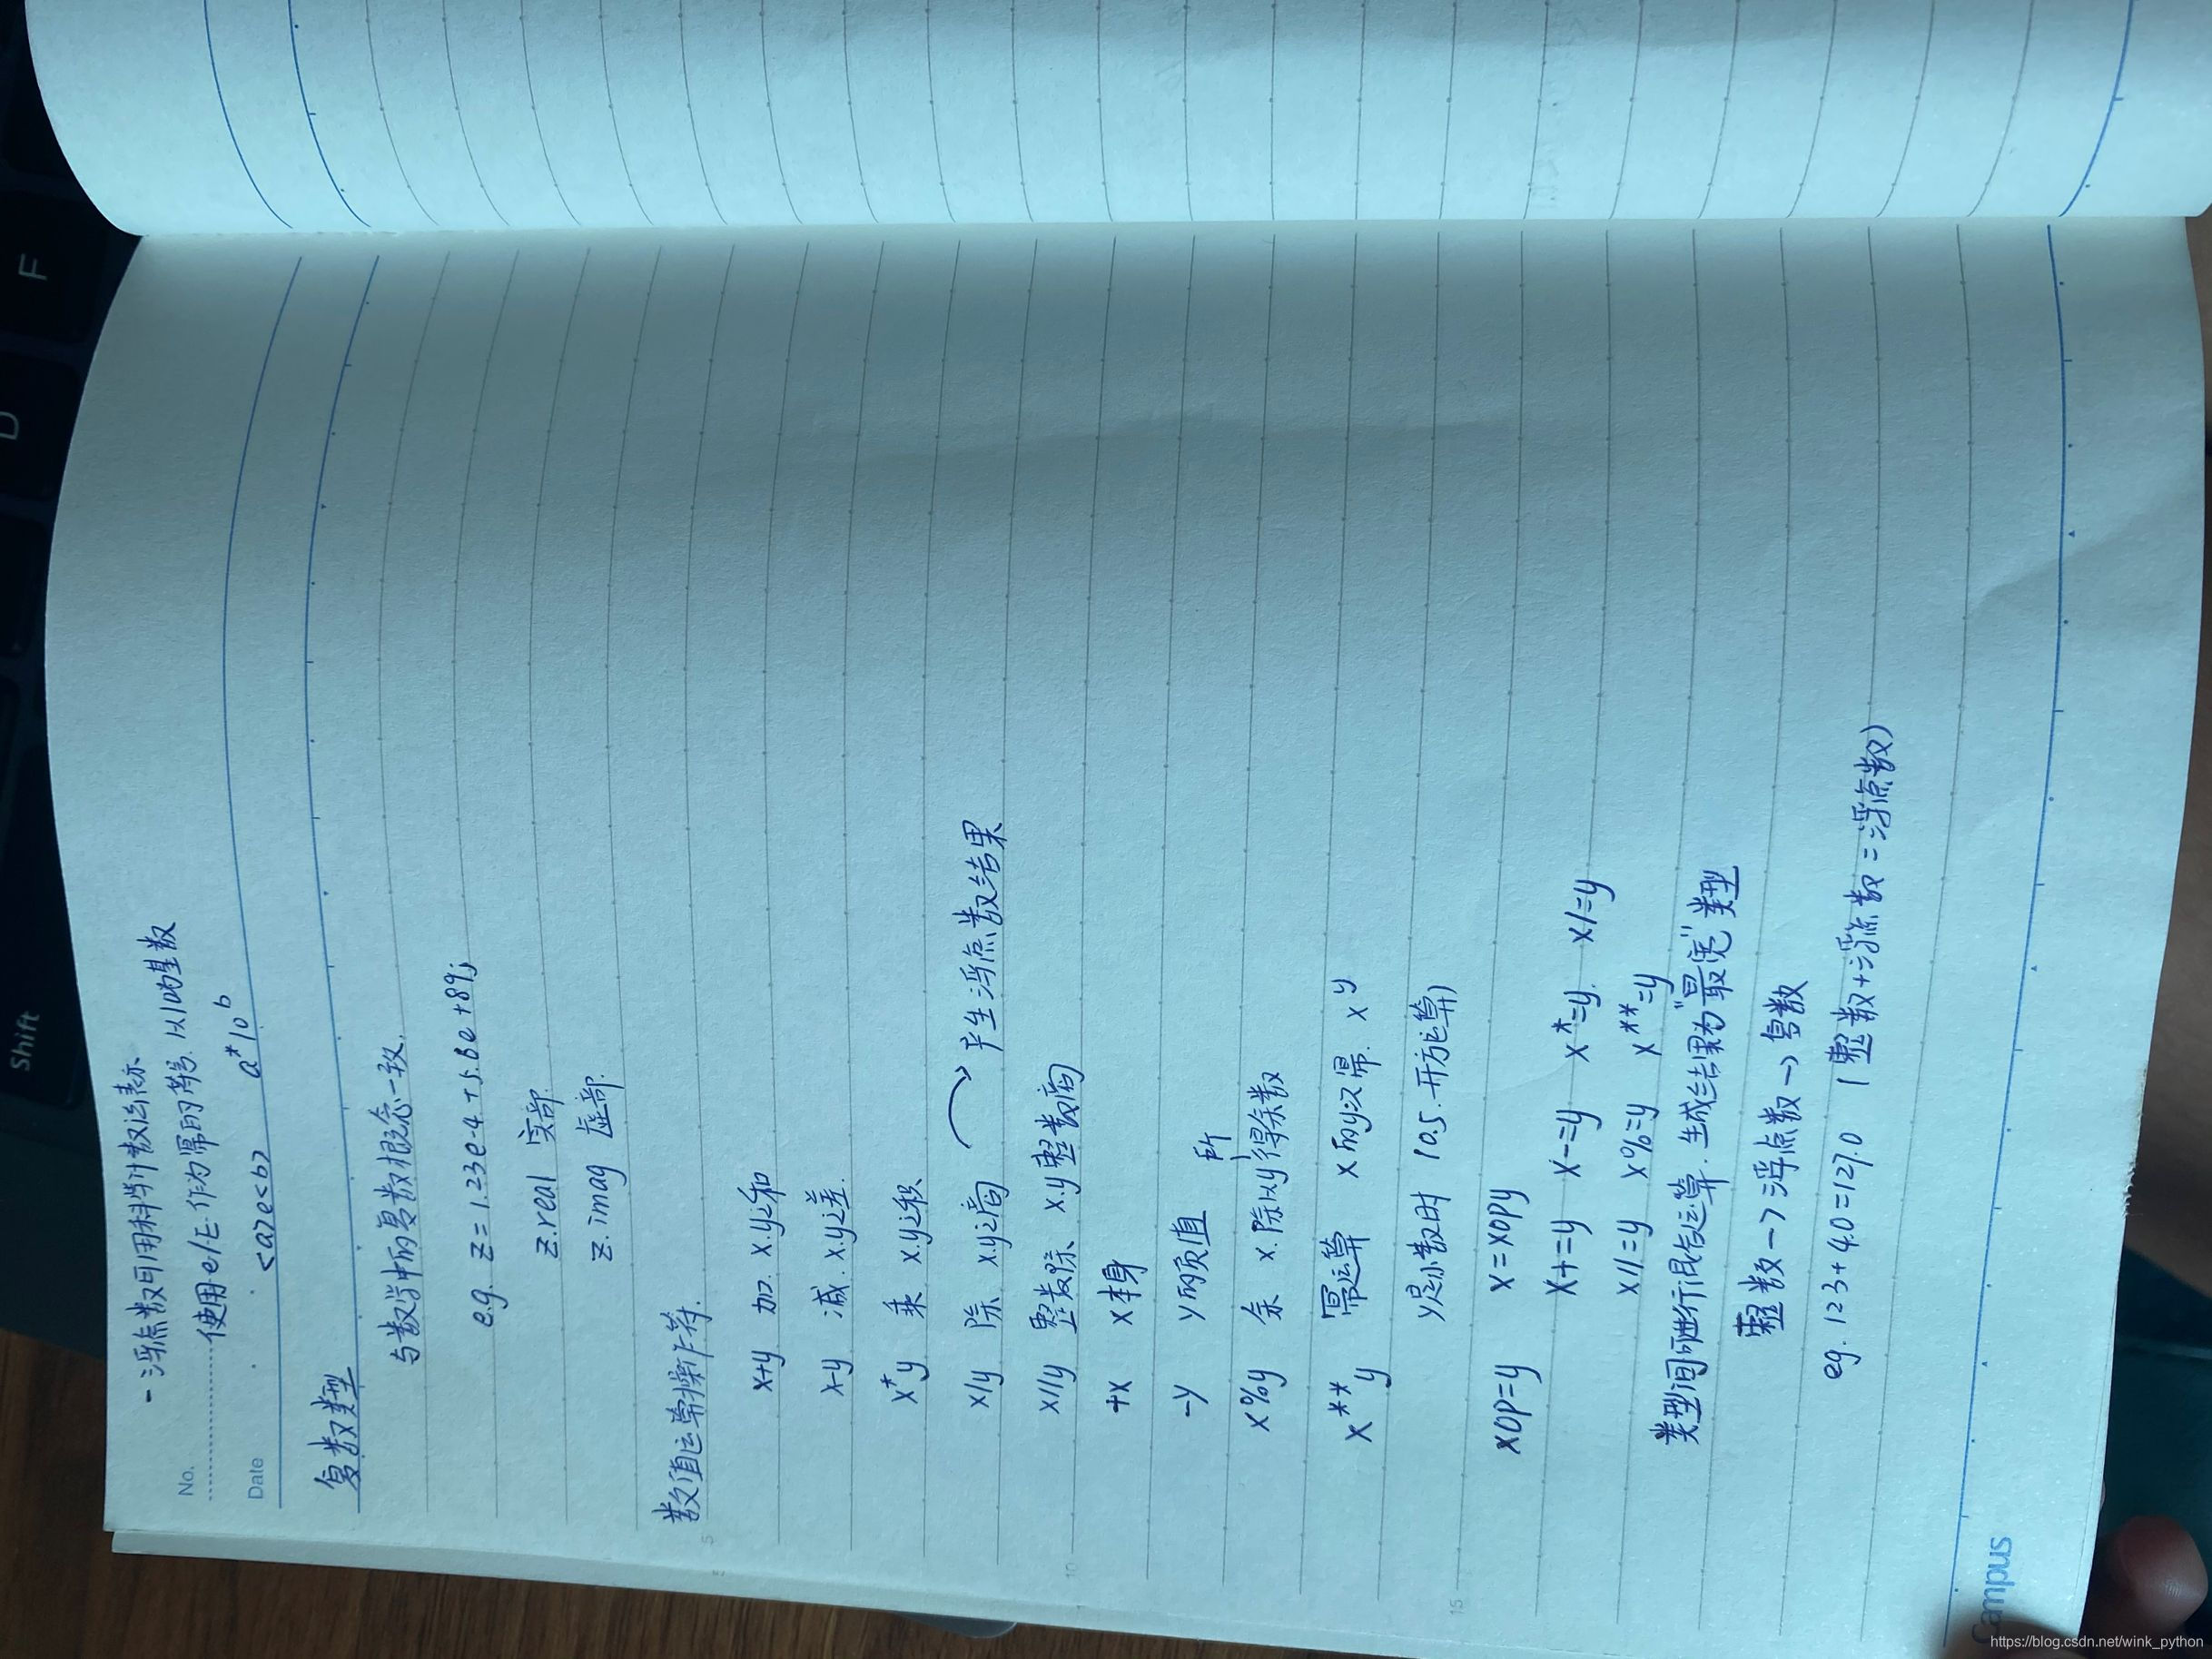 - 浮点数可用科学计数法表示
No. 使用e/E作为幂的符号. 以10为基数
Date <a>e<b> a*10^b
复数类型
与数学中的复数概念一致.
e.g. z=1.23e-4+5.6e+89j
z.real 实部.
z.imag 虚部.
5 数值运算操作符.
x+y 加. x.y之和
x-y 减. x.y之差.
x*y 乘 x.y之积
x/y 除 x.y之商 产生浮点数结果
10 x//y 整数除 x.y整数商
+x x本身
-y y的负值
x%y 余 x.除以y所得余数
x**y 幂运算 x的y次幂. x^y
15 y是小数时 10.5.开方运算)
xop=y x=xopy
x+=y x-=y x*=y. x/=y
x//=y x%=y x**=y
类型间可进行混合运算. 生成结果为"最宽"类型
整数->浮点数->复数
eg. 123+4.0=127.0 (整数+浮点数=浮点数)
Campus
Shift
D
F
https://blog.csdn.net/wink_python